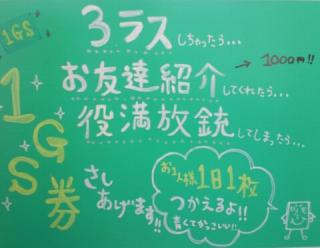 1GS
3ラスしちゃったら…
→1000円!!
お友達紹介してくれたら…
役満放銃してしまったら…
1GS券
さしあげます!!
お1人様1日1枚
つかえるよ!!
青くてかっこいい!!